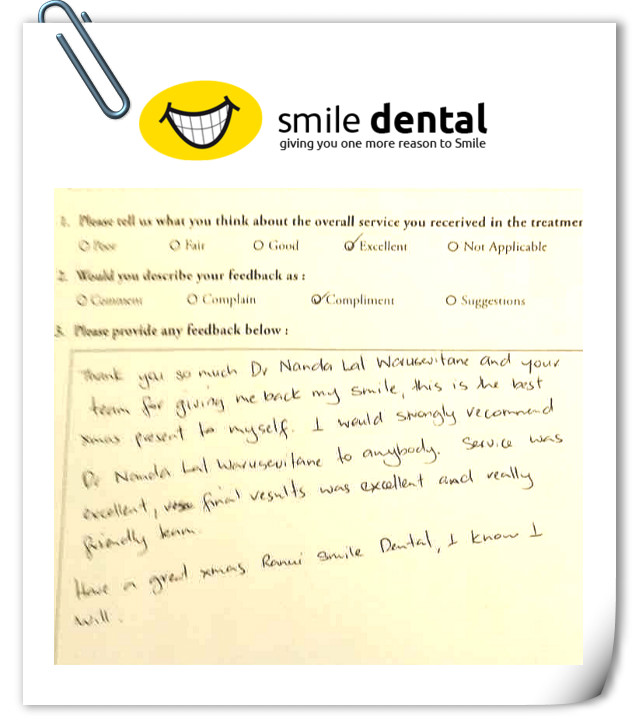 smile dental
giving you one more reason to Smile
1. Please tell us what you think about the overall service you recerived in the treatmer
Poor Fair Good Excellent Not Applicable
2. Would you describe your feedback as :
Comment Complain Compliment Suggestions
3. Please provide any feedback below :
Thank you so much Dr Nanda Lal Warusevitane and your
team for giving me back my smile, this is the best
xmas present to myself. I would strongly recommend
Dr Nanda Lal Warusevitane to anybody. Service was
excellent, final results was excellent and really
friendly team.
Have a great xmas Ranui Smile Dental, I know I
will.